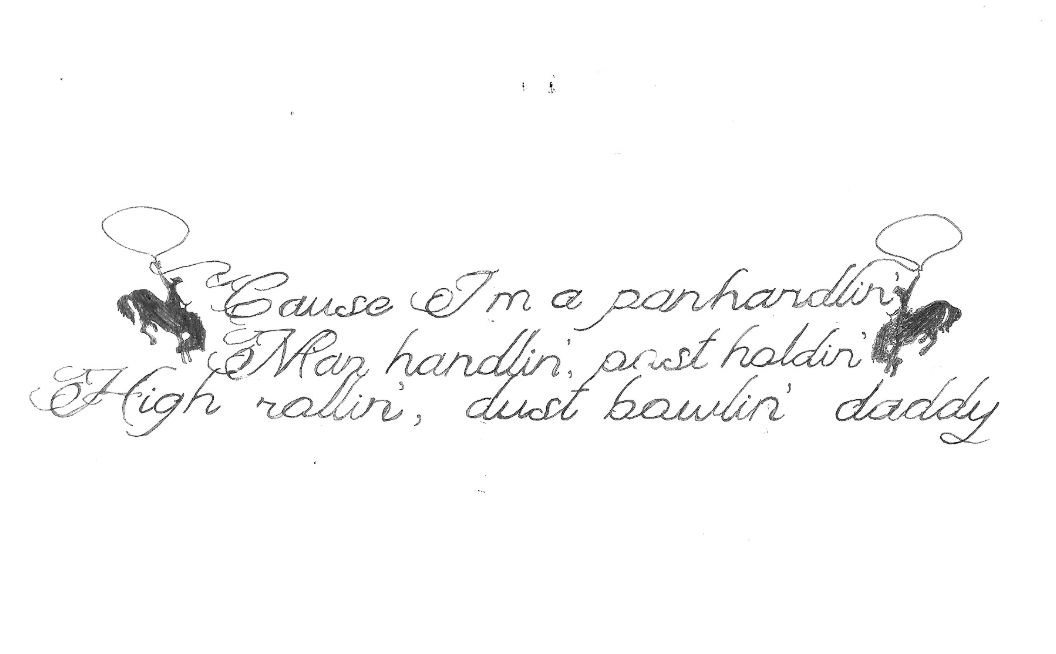 'Cause I'm a panhandlin'
Man handlin', post holdin'
High rollin', dust bowlin' daddy